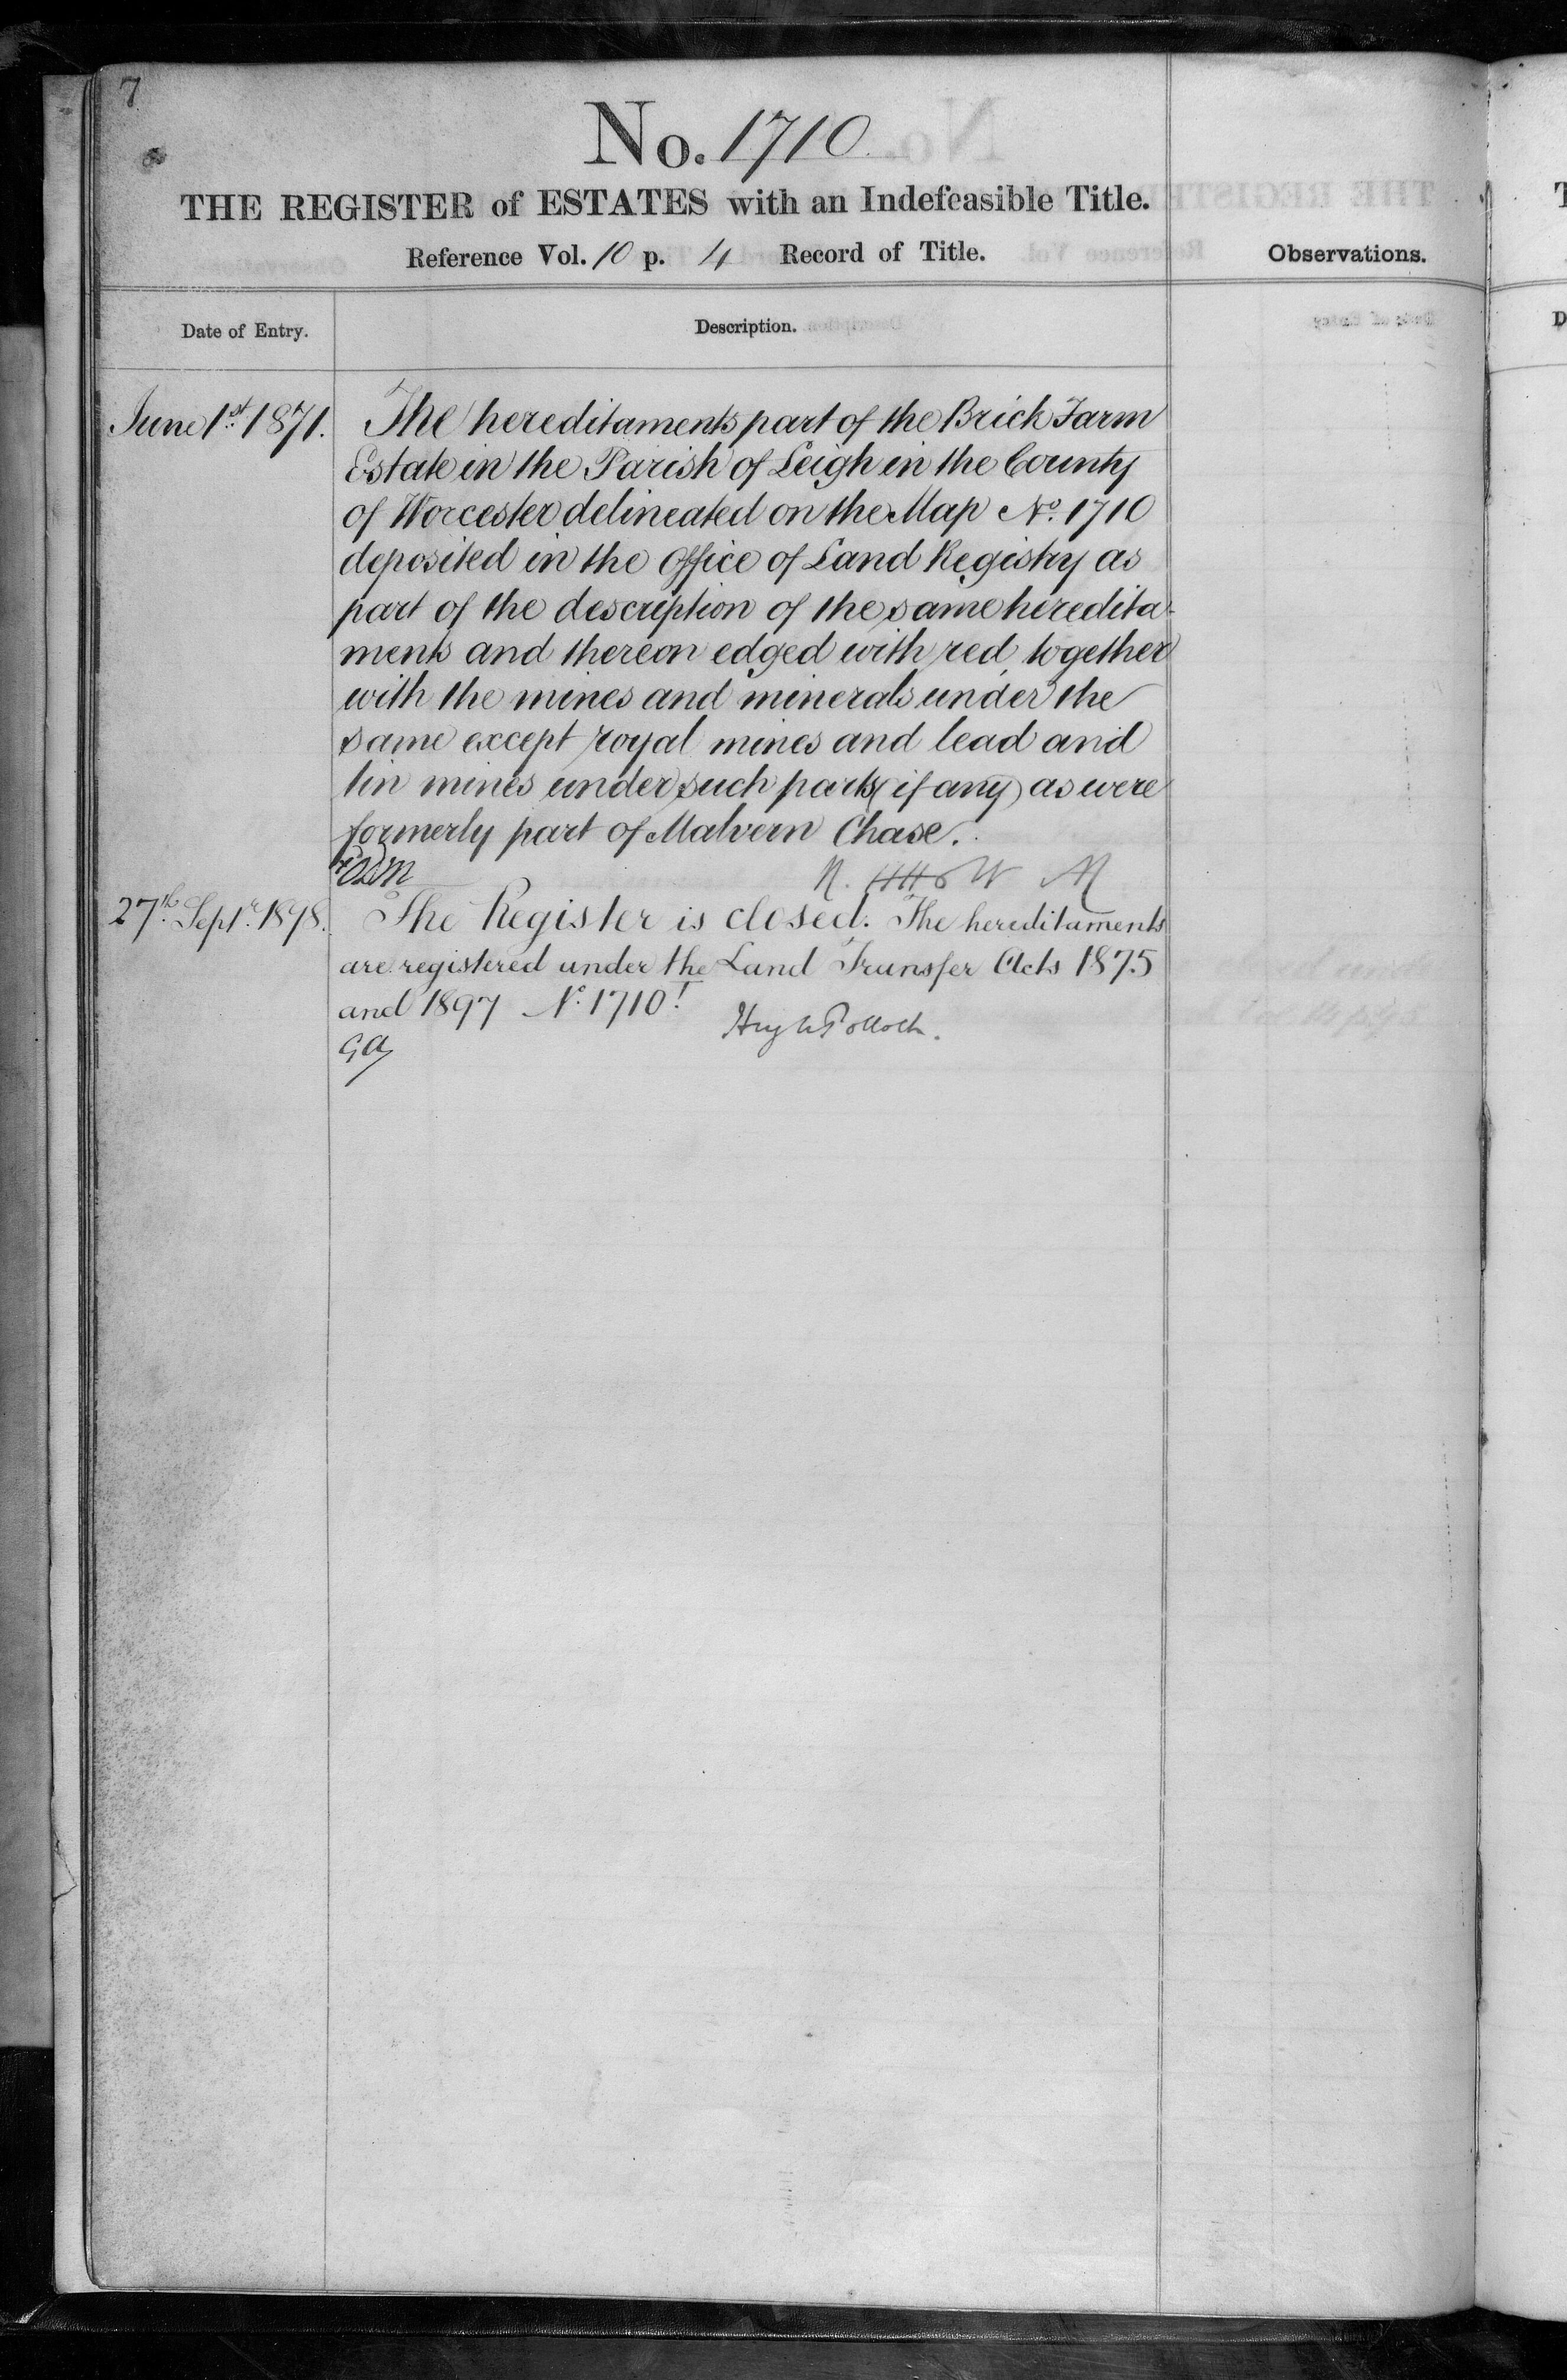 7
No. 1710
THE REGISTER of ESTATES with an Indefeasible Title.
Reference Vol. 10 p. 4 Record of Title.
Observations.
Date of Entry.
Description.
June 1st 1871.
The hereditaments part of the Brick Farm
Estate in the Parish of Leigh in the County
of Worcester delineated on the Map No. 1710
deposited in the Office of Land Registry as
part of the description of the same heredita-
ments and thereon edged with red, together
with the mines and minerals under the
same except royal mines and lead and
tin mines under such parts (if any) as were
formerly part of Malvern Chase.
27th Septr. 1898.
The Register is closed. The hereditaments
are registered under the Land Transfer Acts 1875
and 1897 No. 1710!
Hugh Pollock.
GA